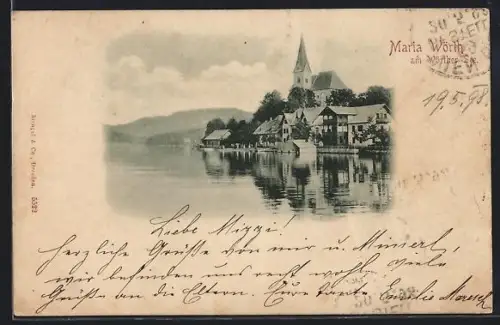 Maria Wörth
am Wörther See.
19.5.98.
Stengel & Co., Dresden. 5522
Liebe Mizzi!
Herzliche Grüße von mir u. Minierl,
wir befinden uns recht wohl. Viele
Grüße an die Eltern. Eure Tante Emilie